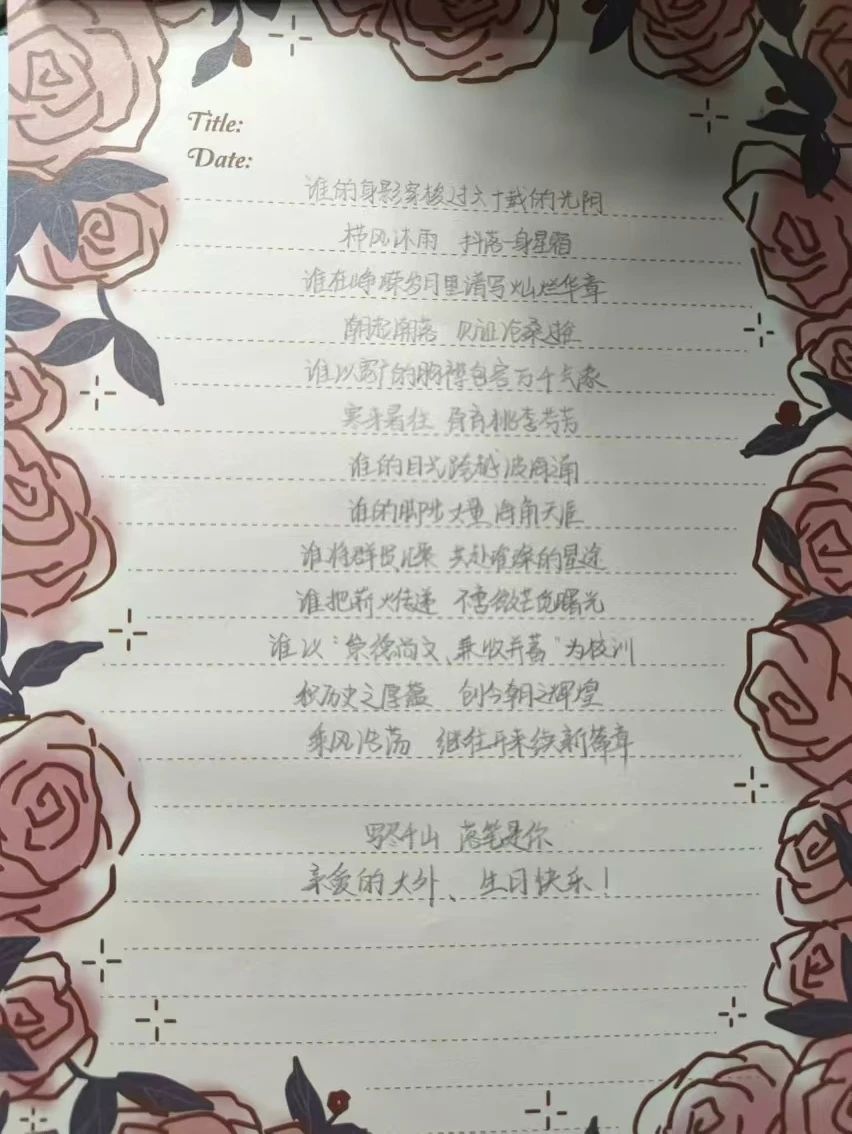 Title:
Date:
谁的身影穿梭过六十载的光阴
栉风沐雨 抖落一身星霜
谁在峥嵘岁月里谱写灿烂华章
潮起潮落 见证沧桑过往
谁以宽广的胸襟包容万千气象
寒来暑往 育育桃李芬芳
谁的目光跨越波海涌
谁的脚步丈量海角天涯
谁将群贤汇聚 共赴璀璨的星途
谁把薪火传递 不吝微芒觅曙光
谁以“崇德尚文、兼收并蓄”为校训
积历史之厚蕴 创今朝之辉煌
乘风浩荡 继往开来续新篇章
写尽千山 落笔是你
亲爱的大外、生日快乐！